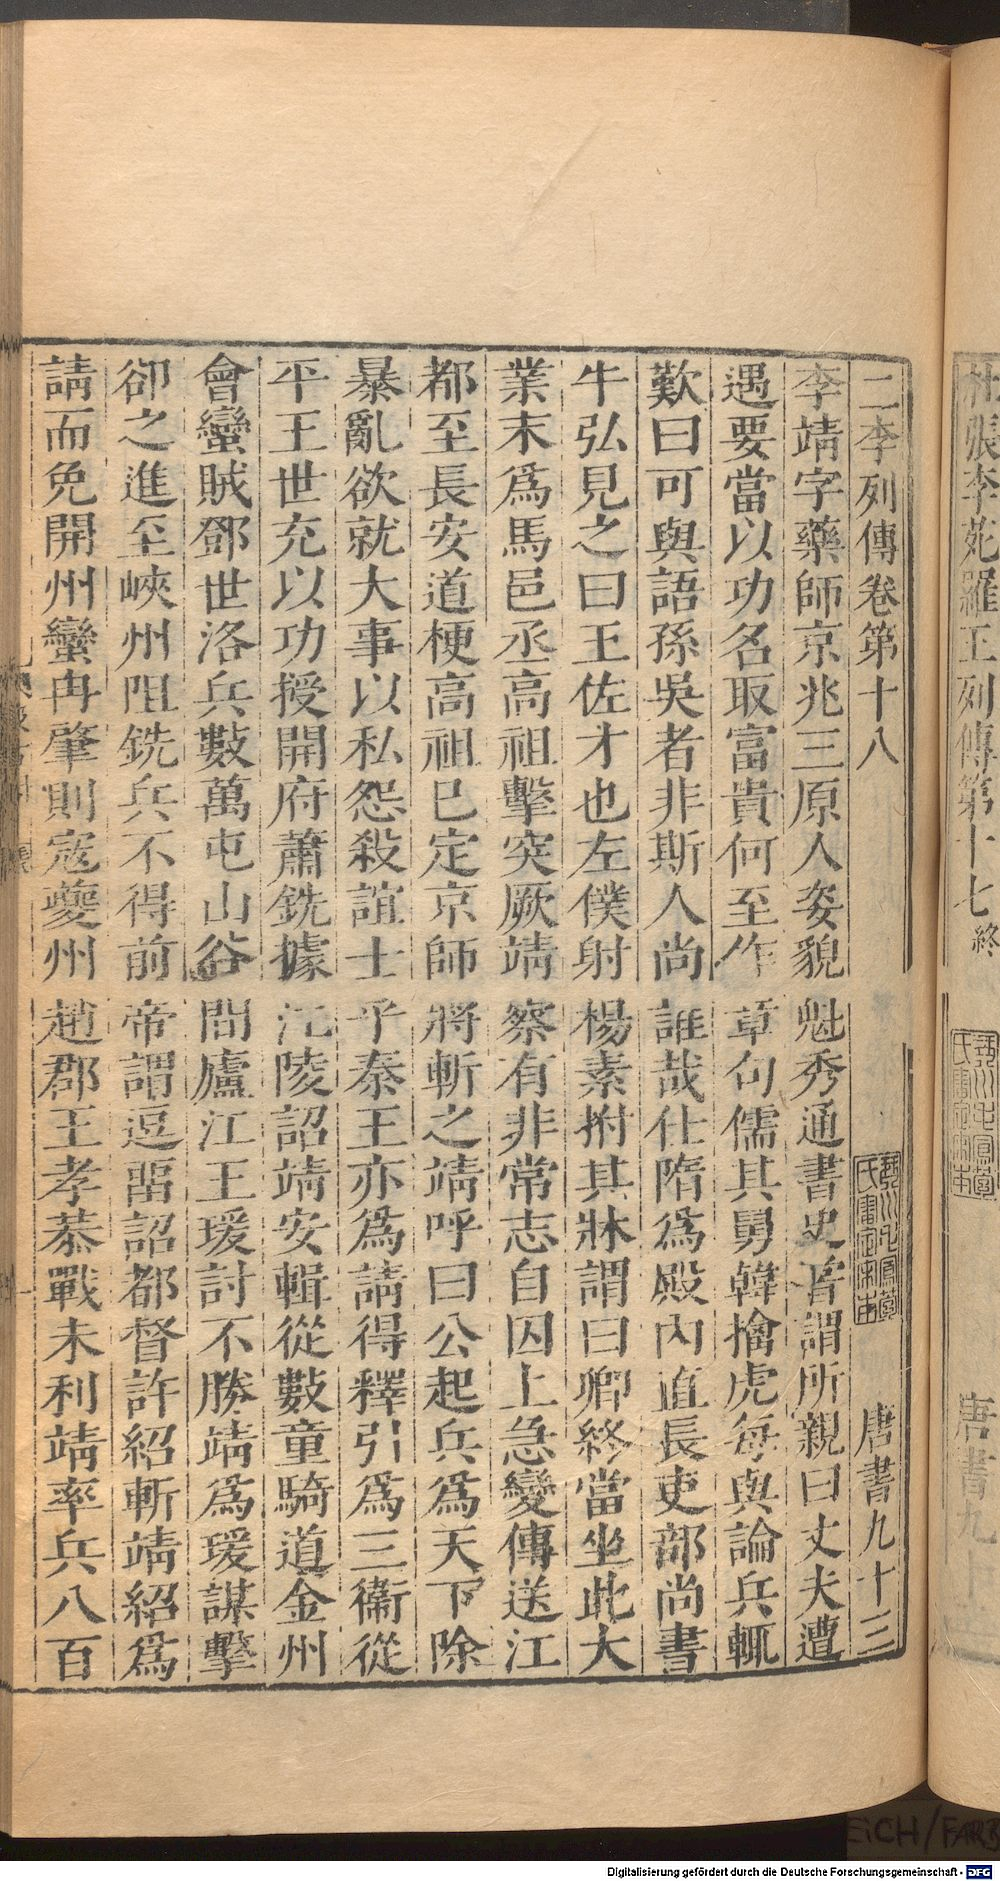 杜張李苑羅王列傳第十七 終
唐書九
二李列傳卷第十八 唐書九十三
琴川毛鳳苞氏審定宋本
李靖字藥師京兆三原人姿貌魁秀通書史嘗謂所親曰丈夫遭
遇要當以功名取富貴何至作章句儒其舅韓擒虎每與論兵輒
歎曰可與語孫吳者非斯人尚誰哉仕隋爲殿內直長吏部尚書
牛弘見之曰王佐才也左僕射楊素拊其牀謂曰卿終當坐此大
業末爲馬邑丞高祖擊突厥靖察有非常志自囚上急變傳送江
都至長安道梗高祖已定京師將斬之靖呼曰公起兵爲天下除
暴亂欲就大事以私怨殺誼士乎秦王亦爲請得釋引爲三衞從
平王世充以功授開府蕭銑據江陵詔靖安輯從數童騎道金州
會蠻賊鄧世洛兵數萬屯山谷間廬江王瑗討不勝靖爲瑗謀擊
卻之進至峽州阻銑兵不得前帝謂逗畱詔都督許紹斬靖紹爲
請而免開州蠻冉肇則寇夔州趙郡王孝恭戰未利靖率兵八百
Digitalisierung gefördert durch die Deutsche Forschungsgemeinschaft - DFG